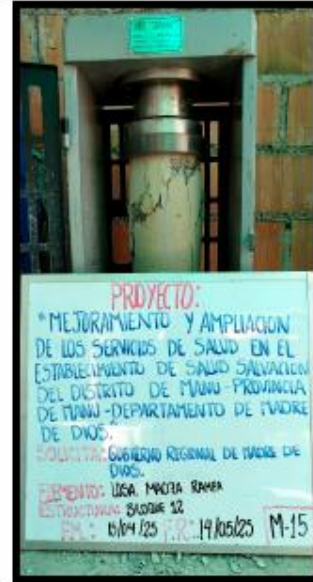 PROYECTO:
"MEJORAMIENTO Y AMPLIACION
DE LOS SERVICIOS DE SALUD EN EL
ESTABLECIMIENTO DE SALUD SALVACION
DEL DISTRITO DE MANU-PROVINCIA
DE MANU-DEPARTAMENTO DE MADRE
DE DIOS."
SOLICITA: GOBIERNO REGIONAL DE MADRE DE
DIOS.
ELEMENTO: LOSA MACIZA RAMPA
ESTRUCTURAL: BLOQUE 12
F.M.: 15/04/25 F.R.: 19/05/25 M-15